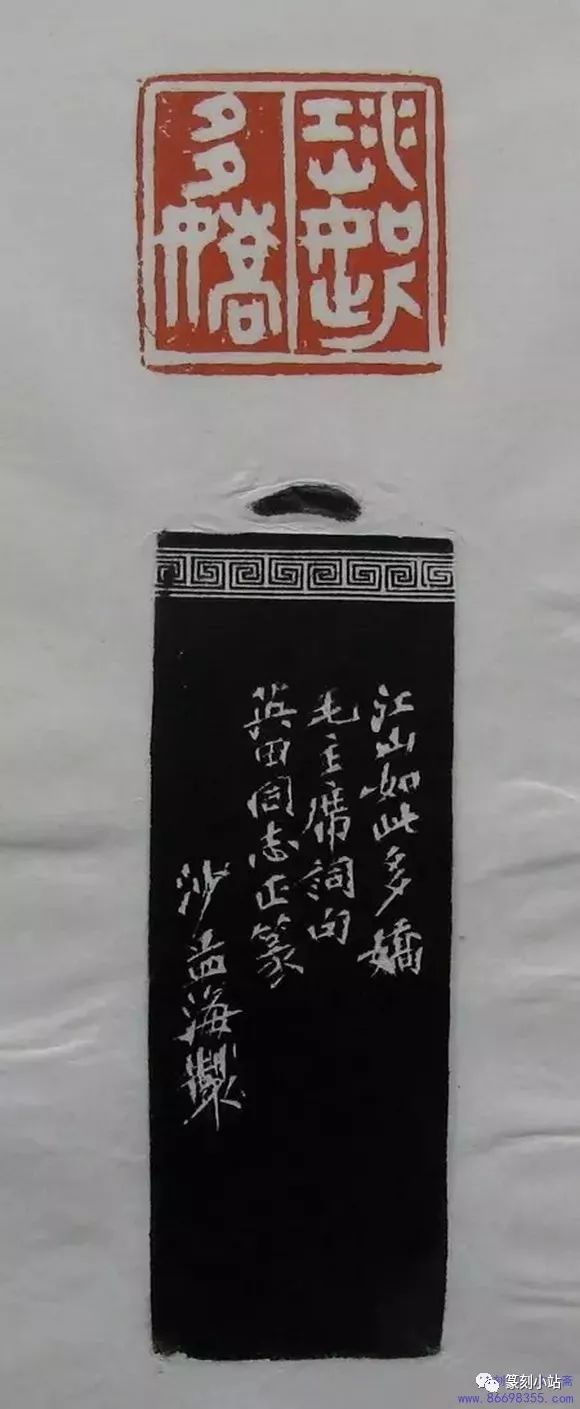 江山如此多嬌
江山如此多嬌
毛主席詞句
英田同志正篆
沙孟海製
斋
篆刻小站
www.86698355.com